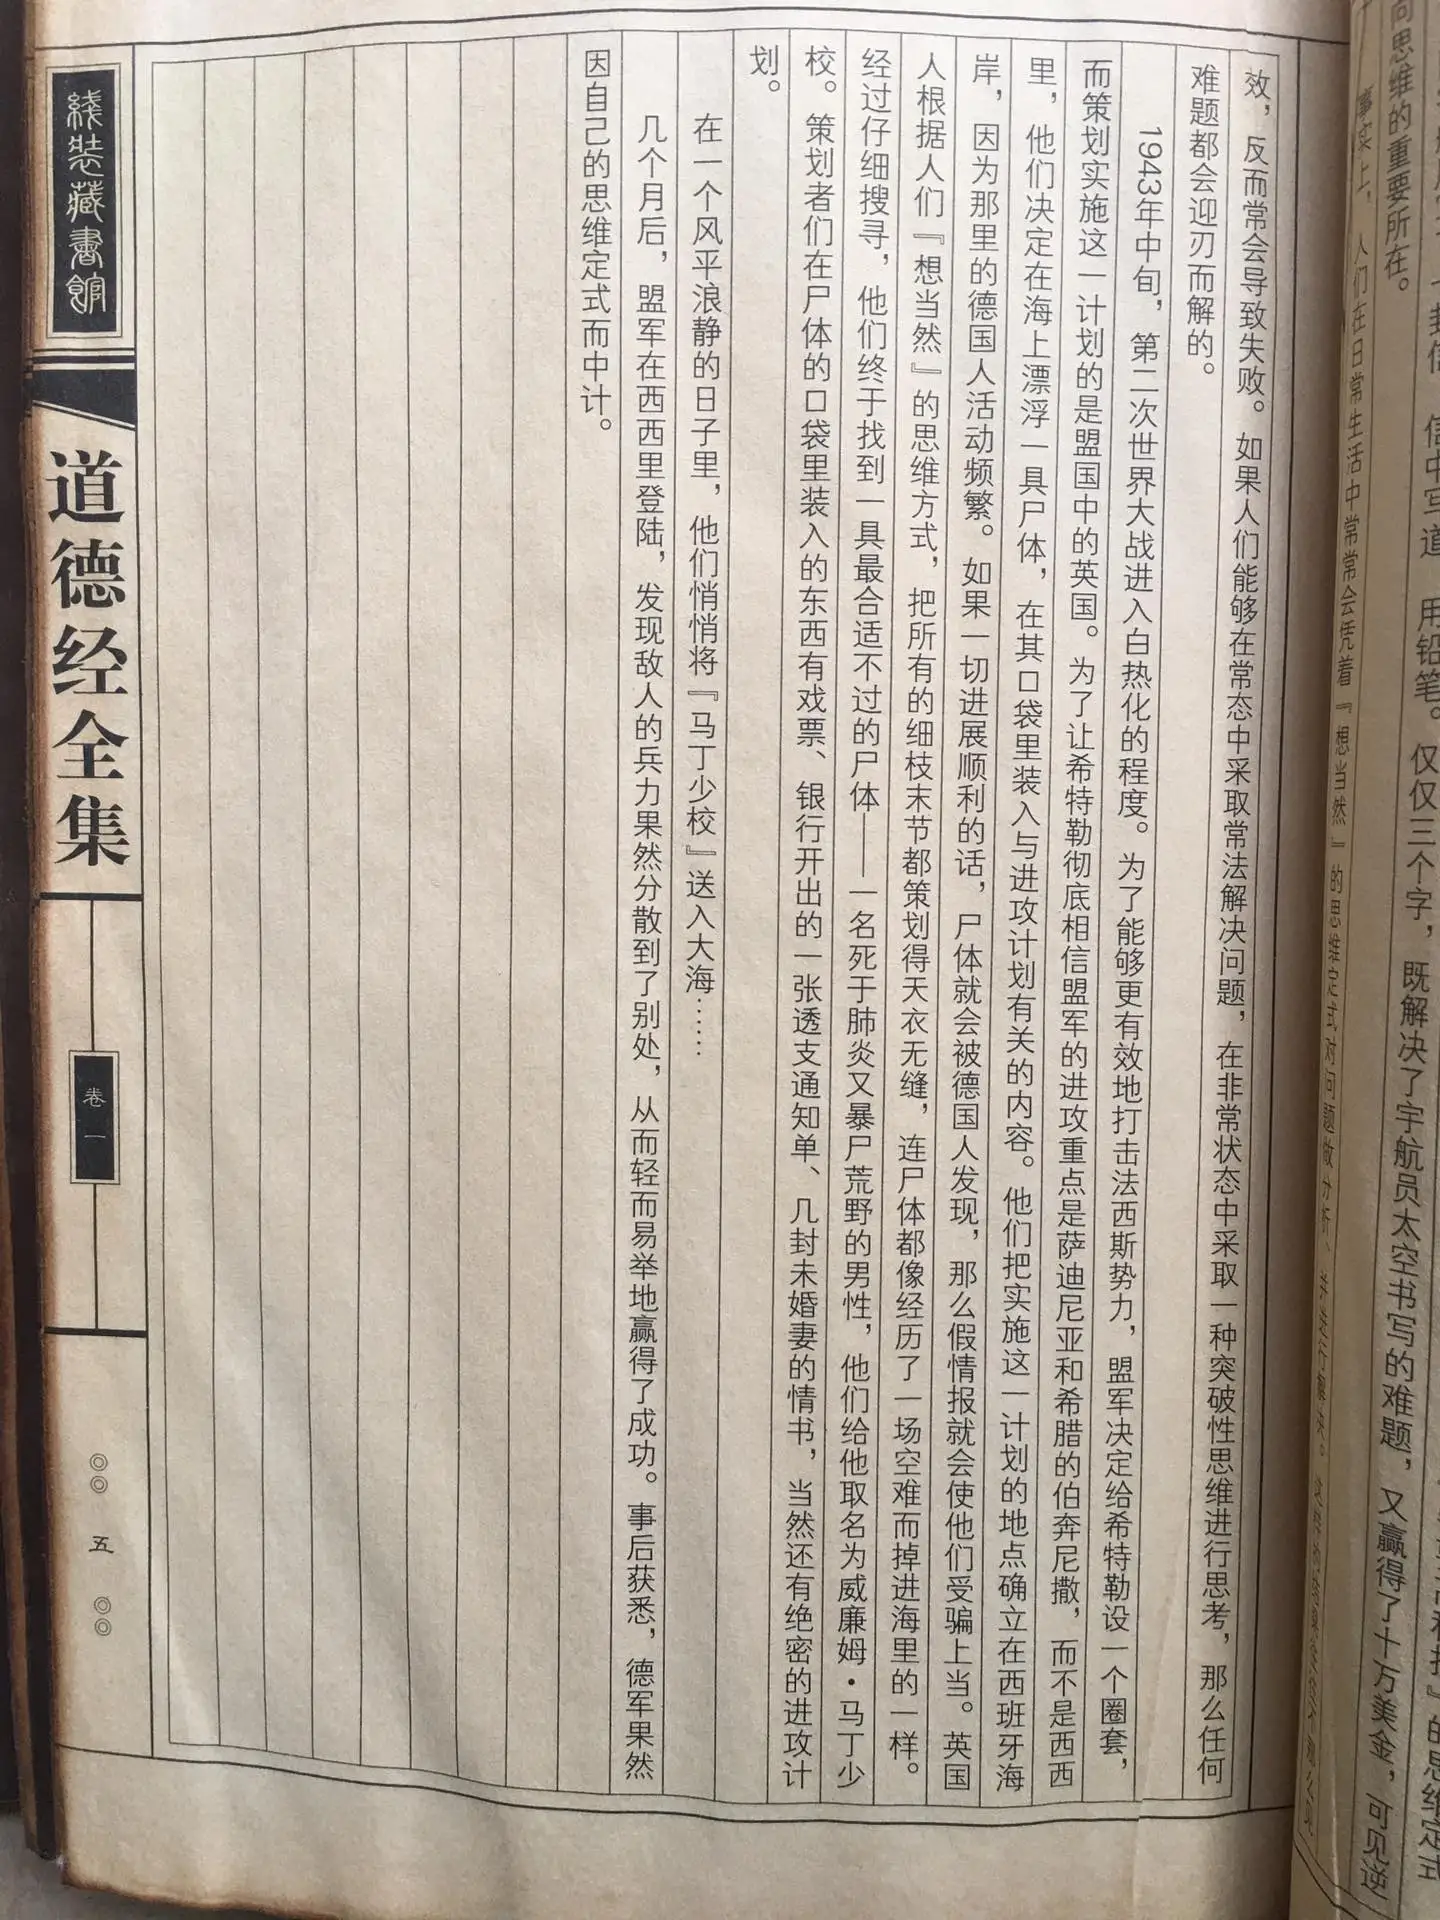 向思维的重要所在。
事实上，人们在日常生活中常常会凭着『想当然』的思维定式对问题做分析、并进行解决。
效，反而常会导致失败。如果人们能够在常态中采取常法解决问题，在非常状态中采取一种突破性思维进行思考，那么任何
难题都会迎刃而解的。
1943年中旬，第二次世界大战进入白热化的程度。为了能够更有效地打击法西斯势力，盟军决定给希特勒设一个圈套，
而策划实施这一计划的是盟国中的英国。为了让希特勒彻底相信盟军的进攻重点是萨迪尼亚和希腊的伯奔尼撒，而不是西西
里，他们决定在海上漂浮一具尸体，在其口袋里装入与进攻计划有关的内容。他们把实施这一计划的地点确立在西班牙海
岸，因为那里的德国人活动频繁。如果一切进展顺利的话，尸体就会被德国人发现，那么假情报就会使他们受骗上当。英国
人根据人们『想当然』的思维方式，把所有的细枝末节都策划得天衣无缝，连尸体都像经历了一场空难而掉进海里的一样。
经过仔细搜寻，他们终于找到一具最合适不过的尸体——一名死于肺炎又暴尸荒野的男性，他们给他取名为威廉姆·马丁少
校。策划者们在尸体的口袋里装入的东西有戏票、银行开出的一张透支通知单、几封未婚妻的情书，当然还有绝密的进攻计
划。
在一个风平浪静的日子里，他们悄悄将『马丁少校』送入大海……
几个月后，盟军在西西里登陆，发现敌人的兵力果然分散到了别处，从而轻而易举地赢得了成功。事后获悉，德军果然
因自己的思维定式而中计。
线装藏書館
道德经全集
卷一
五